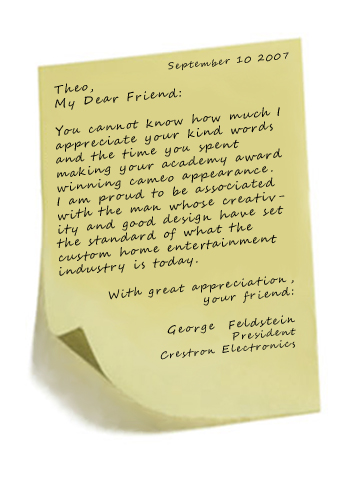 September 10 2007
Theo,
My Dear Friend:
You cannot know how much I
appreciate your kind words
and the time you spent
making your academy award
winning cameo appearance.
I am proud to be associated
with the man whose creativ-
ity and good design have set
the standard of what the
custom home entertainment
industry is today.
With great appreciation,
your friend:
George Feldstein
President
Crestron Electronics